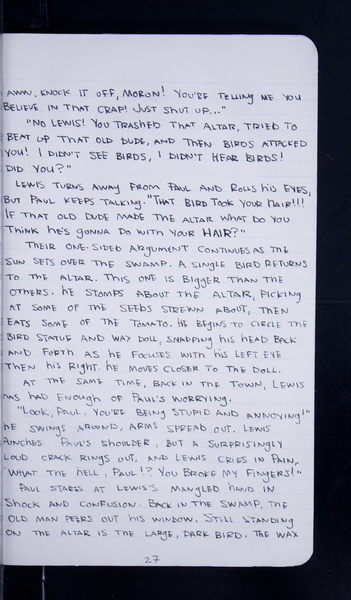 AWW, KNOCK IT OFF, MORON! YOU'RE TELLING ME YOU
BELIEVE IN THAT CRAP! JUST SHUT UP..."
"NO LEWIS! YOU TRASHED THAT ALTAR, TRIED TO
BEAT UP THAT OLD DUDE, AND THEN BIRDS ATTACKED
YOU! I DIDN'T SEE BIRDS, I DIDN'T HEAR BIRDS!
DID YOU?"
LEWIS TURNS AWAY FROM PAUL AND ROLLS HIS EYES,
BUT PAUL KEEPS TALKING. "THAT BIRD TOOK YOUR HAIR!!!
IF THAT OLD DUDE MADE THE ALTAR WHAT DO YOU
THINK HE'S GONNA DO WITH YOUR HAIR?"
THEIR ONE-SIDED ARGUMENT CONTINUES AS THE
SUN SETS OVER THE SWAMP. A SINGLE BIRD RETURNS
TO THE ALTAR. THIS ONE IS BIGGER THAN THE
OTHERS. HE STOMPS ABOUT THE ALTAR, PICKING
AT SOME OF THE SEEDS STREWN ABOUT, THEN
EATS SOME OF THE TOMATO. HE BEGINS TO CIRCLE THE
BIRD STATUE AND WAX DOLL, SNAPPING HIS HEAD BACK
AND FORTH AS HE FOCUSES WITH HIS LEFT EYE
THEN HIS RIGHT. HE MOVES CLOSER TO THE DOLL.
AT THE SAME TIME, BACK IN THE TOWN, LEWIS
HAS HAD ENOUGH OF PAUL'S WORRYING.
"LOOK, PAUL. YOU'RE BEING STUPID AND ANNOYING!"
HE SWINGS AROUND, ARMS SPREAD OUT. LEWIS
PUNCHES PAUL'S SHOULDER, BUT A SURPRISINGLY
LOUD CRACK RINGS OUT, AND LEWIS CRIES IN PAIN,
"WHAT THE HELL, PAUL!? YOU BROKE MY FINGERS!"
PAUL STARES AT LEWIS'S MANGLED HAND IN
SHOCK AND CONFUSION. BACK IN THE SWAMP, THE
OLD MAN PEERS OUT HIS WINDOW. STILL STANDING
ON THE ALTAR IS THE LARGE, DARK BIRD. THE WAX
27